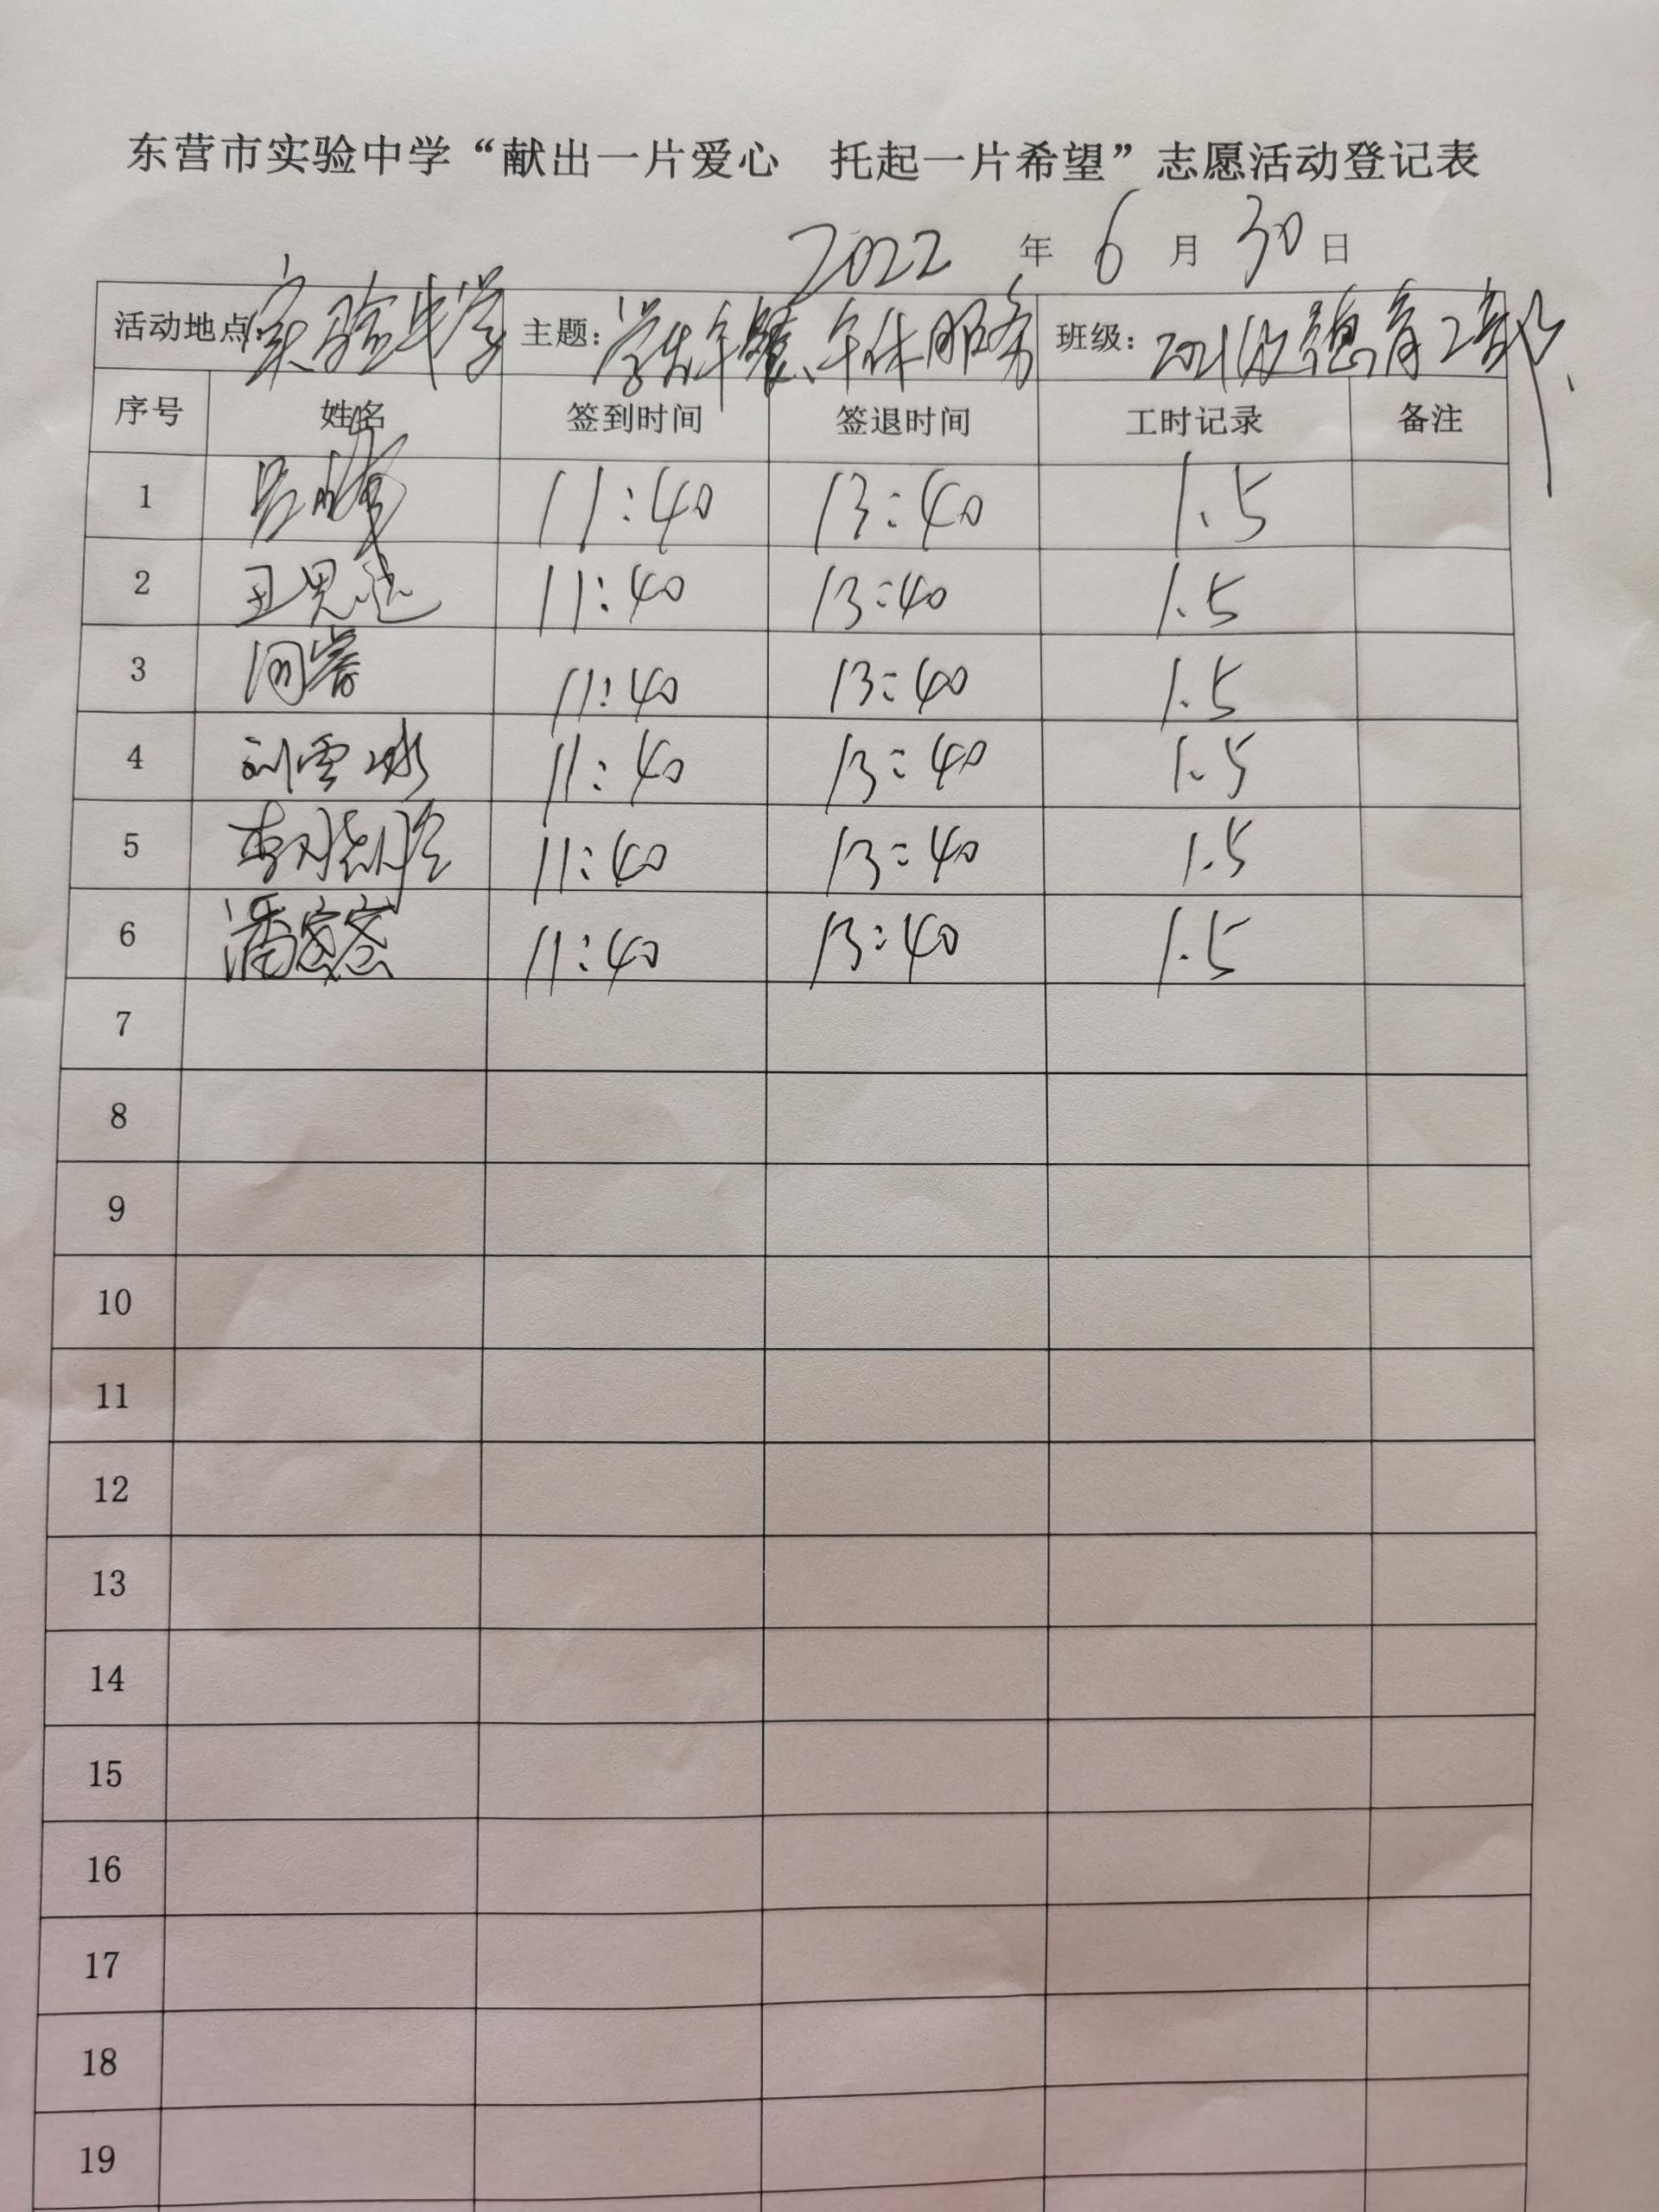 东营市实验中学“献出一片爱心 托起一片希望”志愿活动登记表
2022 年 6 月 30 日
活动地点: 实验中学 主题: 学生午餐、午休服务 班级: 2021级德育工作
序号 姓名 签到时间 签退时间 工时记录 备注
1 11:40 13:40 1.5
2 11:40 13:40 1.5
3 11:40 13:40 1.5
4 刘雪冰 11:40 13:40 1.5
5 11:40 13:40 1.5
6 潘密密 11:40 13:40 1.5
7
8
9
10
11
12
13
14
15
16
17
18
19